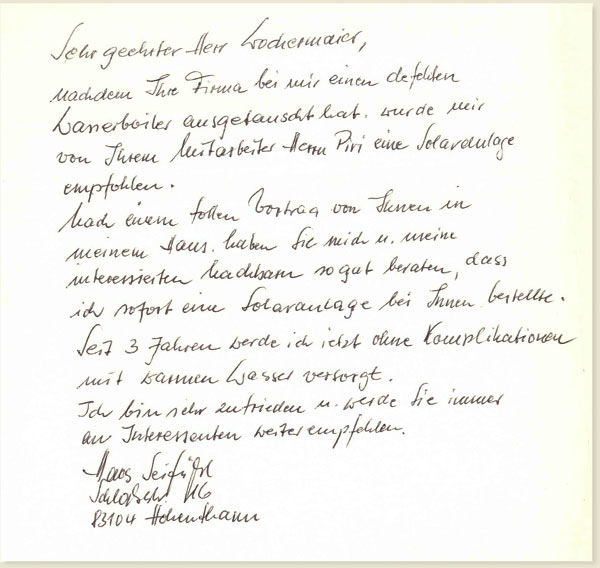 Sehr geehrter Herr Wochermaier,
nachdem Ihre Firma bei mir einen defekten
Wasserboiler ausgetauscht hat, wurde mir
von Ihrem Mitarbeiter Herrn Piri eine Solaranlage
empfohlen.
Nach einem tollen Vortrag von Ihnen in
meinem Haus, haben Sie mich u. meine
interessierten Nachbarn so gut beraten, dass
ich sofort eine Solaranlage bei Ihnen bestellte.
Seit 3 Jahren werde ich jetzt ohne Komplikationen
mit warmen Wasser versorgt.
Ich bin sehr zufrieden u. werde Sie immer
an Interessenten weiterempfehlen.
Hans
Schloßstr. 116
83104 Hohenthann